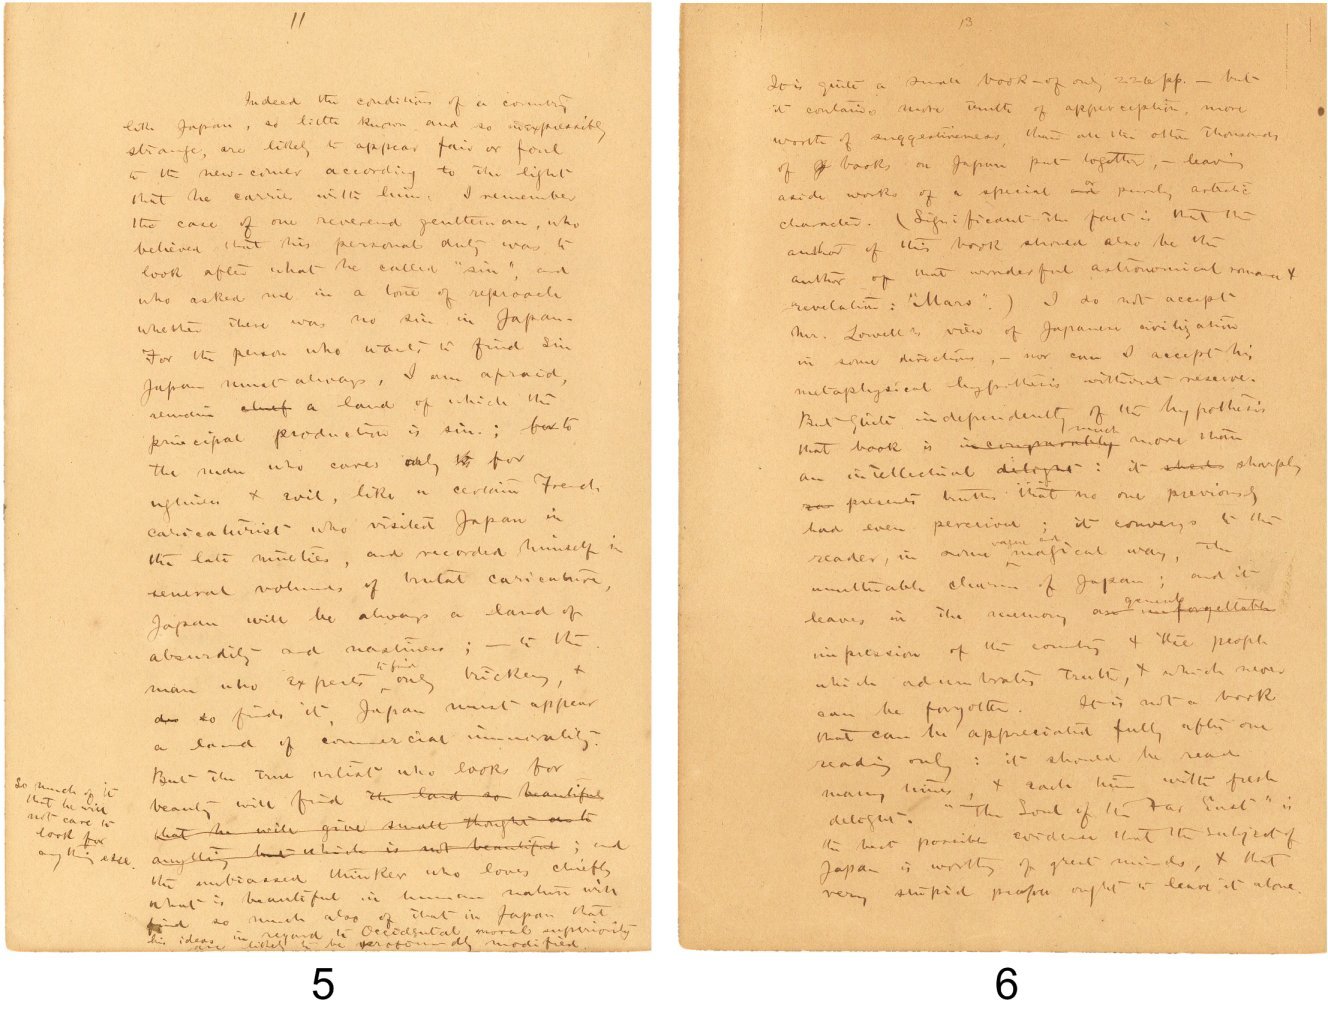 11
Indeed the conditions of a country
like Japan, so little known and so inexpressibly
strange, are likely to appear fair or foul
to the new-comer according to the light
that he carries with him. I remember
the case of one reverend gentleman, who
believed that his personal duty was to
look after what he called "sin"; and
who asked me in a tone of reproach
whether there was no sin in Japan.
For the person who wants to find sin
Japan must always, I am afraid,
remain chief a land of which the
principal production is sin; but to
the man who cares only for
ugliness & evil, like a certain French
caricaturist who visited Japan in
the late nineties, and recorded himself in
several volumes of brutal caricature,
Japan will be always a land of
absurdity and nastiness; — to the
man who expects to find only trickery, &
so finds it, Japan must appear
a land of commercial immorality.
But the true artist who looks for
beauty will find the land so beautiful
that he will give small thought to
anything but which is not beautiful; and
So much of it
that he will
not care to
look for
anything else.
the unbiassed thinker who loves chiefly
what is beautiful in human nature will
find so much also of that in Japan that
his ideas in regard to Occidental moral superiority
are likely to be profoundly modified.
5
13
It is quite a small book—of only 226 pp. — but
it contains more truth of apperception, more
worth of suggestiveness, than all the other thousands
of books on Japan put together, — leaving
aside works of a special and purely artistic
character. (Significant the fact is that the
author of this book should also be the
author of that wonderful astronomical romance &
revelation: "Mars".) I do not accept
Mr. Lowell's view of Japanese civilization
in some directions, — nor can I accept his
metaphysical hypothesis without reserve.
But quite independently of the hypothesis
that book is incomparably much more than
an intellectual delight: it sheds sharply
presents truths that no one previously
had even perceived; it conveys to the
reader, in some vague and magical way, the
unutterable charm of Japan; and it
leaves in the memory an unforgettable general
impression of the country & the people
which adumbrates truth, & which never
can be forgotten. It is not a book
that can be appreciated fully after one
reading only: it should be read
many times, & each time with fresh
delight. "The Soul of the Far East" is
the best possible evidence that the subject of
Japan is worthy of great minds, & that
very stupid people ought to leave it alone.
6